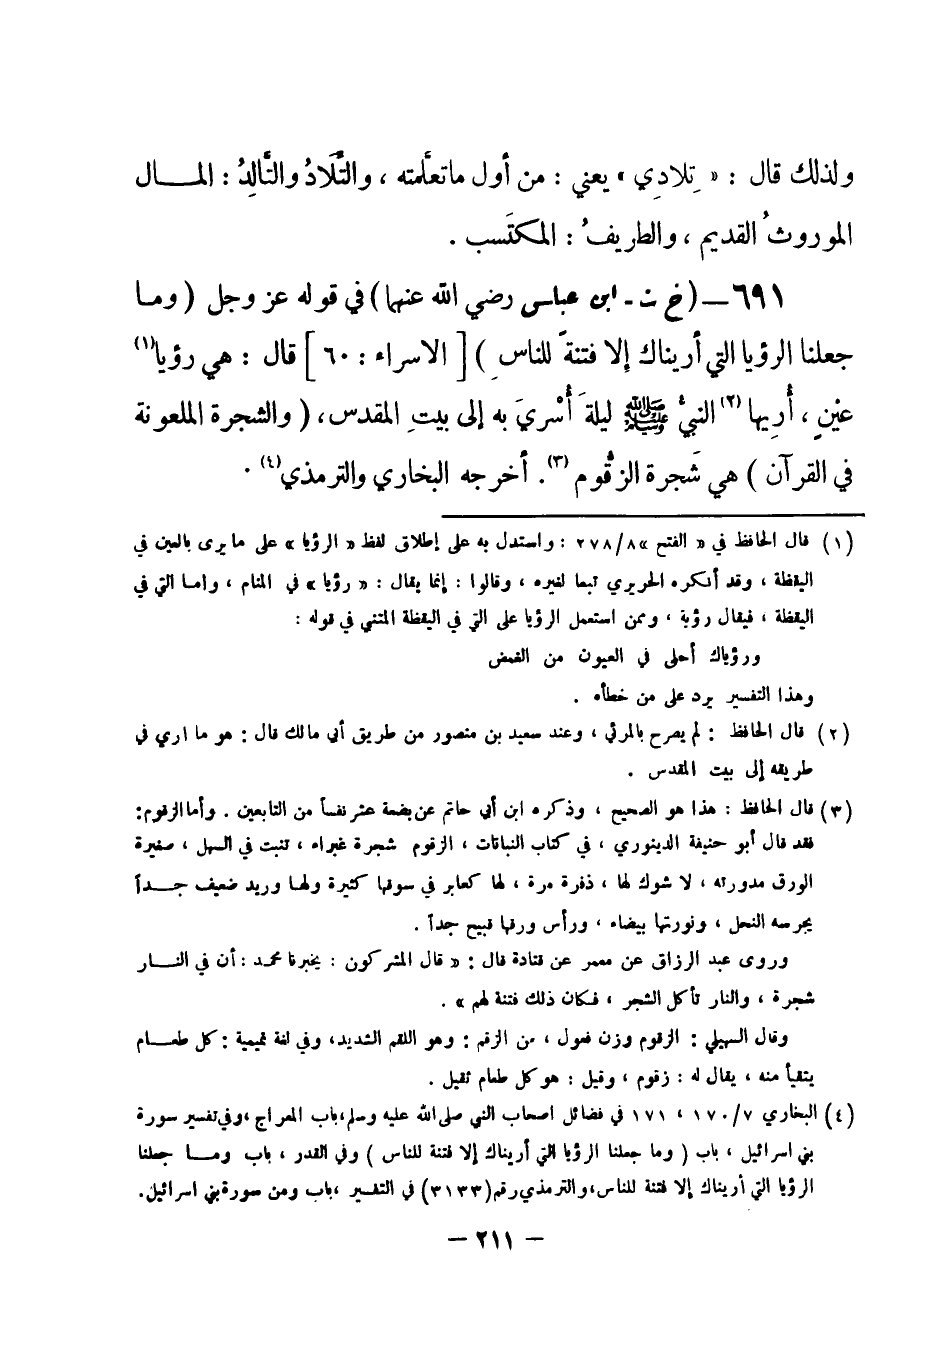 ولذلك قال : « تِلادِي » يعني : من أول ماتعلَّمته ، والتِّلادُ والتَّالِدُ : المـــال
الموروثُ القديم ، والطريفُ : المكتَسب .
٦٩١ – (خ ت - ابن عباس رضي الله عنهما) في قوله عز وجل ( وما
جعلنا الرؤيا التي أريناك إلا فتنةً للناسِ ) [ الاسراء : ٦٠ ] قال : هي رؤيا(١)
عيْنٍ ، أُرِيها (٢) النبيُّ ﷺ ليلةَ أُسْرِيَ به إلى بيتِ المقدس، ( والشجرة الملعونة
في القرآن ) هي شَجرة الزقُّوم (٣). أخرجه البخاري والترمذي(٤) .
(١) قال الحافظ في « الفتح »٢٧٨/٨ : واستدل به على إطلاق لفظ « الرؤيا » على ما يرى بالعين في
اليقظة ، وقد أنكره الحريري تبعا لغيره ، وقالوا : إنما يقال : « رؤيا » في المنام ، واما التي في
اليقظة ، فيقال رؤية ، وممن استعمل الرؤيا على التي في اليقظة المتنبي في قوله :
ورؤياك أحلى في العيون من الغمض
وهذا التفسير يرد على من خطأه .
(٢) قال الحافظ : لم يصرح بالمرئي ، وعند سعيد بن منصور من طريق أبي مالك قال : هو ما اري في
طريقه إلى بيت المقدس .
(٣) قال الحافظ : هذا هو الصحيح ، وذكره ابن أبي حاتم عن بضعة عشر نفساً من التابعين . وأما الزقوم:
فقد قال أبو حنيفة الدينوري ، في كتاب النباتات ، الزقوم شجرة غبراء ، تنبت في السهل ، صغيرة
الورق مدورته ، لا شوك لها ، ذفرة مرة ، لها كعابر في سوقها كثيرة ولها وريد ضعيف جـــداً
يجرسه النحل ، ونورتها بيضاء ، ورأس ورقها قبيح جداً .
وروى عبد الرزاق عن معمر عن قتادة قال : « قال المشركون : يخبرنا محمد : أن في النـــار
شجرة ، والنار تأكل الشجر ، فكان ذلك فتنة لهم » .
وقال السهيلي : الزقوم وزن فعول ، من الزقم : وهو اللقم الشديد، وفي لغة تميمية : كل طعـــام
يتقيأ منه ، يقال له : زقوم ، وقيل : هو كل طعام ثقيل .
(٤) البخاري ١٧٠/٧ ، ١٧١ في فضائل اصحاب النبي صلى الله عليه وسلم،باب المعراج ،وفي تفسير سورة
بني اسرائيل ، باب ( وما جعلنا الرؤيا التي أريناك إلا فتنة للناس ) وفي القدر ، باب ومـــا جعلنا
الرؤيا التي أريناك إلا فتنة للناس،والترمذي رقم (٣١٣٣) في التفسير ،باب ومن سورة بني اسرائيل.
– ٢١١ –